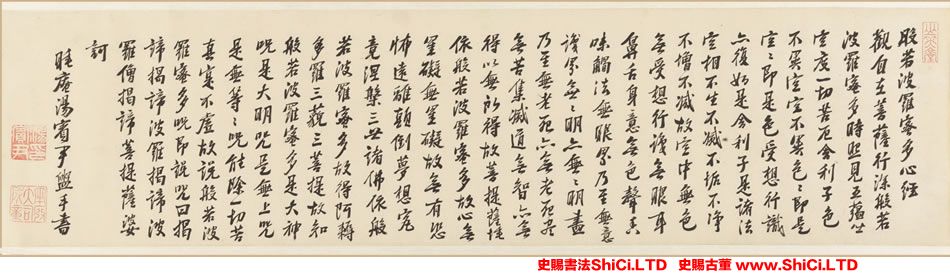 般若波羅蜜多心經
觀自在菩薩行深般若
波羅蜜多時照見五蘊皆
空度一切苦厄舍利子色
不異空空不異色々即是
空々即是色受想行識
亦復如是舍利子是諸法
空相不生不滅不垢不淨
不增不減故空中無色
無受想行識無眼耳
鼻舌身意無色聲香
味觸法無眼界乃至無意
識界無々明亦無々明盡
乃至無老死亦無老死盡
無苦集滅道無智亦無
得以無所得故菩提薩埵
依般若波羅蜜多故心無
罣礙無罣礙故無有恐
怖遠離顛倒夢想究
竟涅槃三世諸佛依般
若波羅蜜多故得阿耨
多羅三藐三菩提故知
般若波羅蜜多是大神
咒是大明咒是無上咒
是無等々咒能除一切苦
真實不虛故說般若波
羅蜜多咒即說咒曰揭
諦揭諦波羅揭諦波
羅僧揭諦菩提薩婆
訶
睡庵湯賓尹盥手書
史賜書法ShiCi.LTD 史賜古董 www.ShiCi.LTD